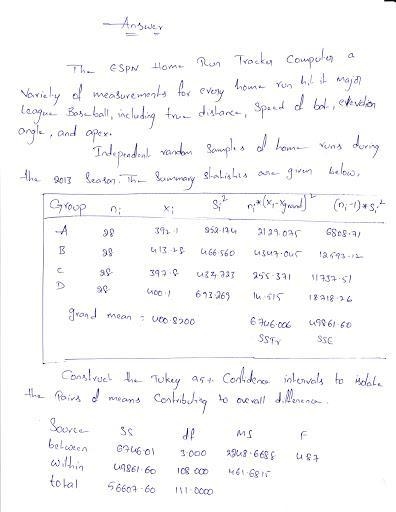 Answer
The ESPN Home Run Tracker Computer a
Variety of measurements for every home run hit it major
League Baseball, including true distance, Speed of bat, elevation
angle, and apex.
Independent random Samples of home runs during
the 2013 Season. The Summary Statistics are given below,
Group ni xi Si² ni*(xi-xgrand)² (ni-1)*Si²
A 28 392.1 252.174 2129.075 6808.71
B 28 413.28 466.560 4347.045 12593.12
C 28 397.8 434.723 255.371 11737.51
D 28 400.1 693.269 14.515 18718.26
grand mean = 400.8200 6746.006 49861.60
SSTr SSE
Construct the Tukey 95% Confidence intervals to isolate
the Pairs of means Contributing to overall difference.
Source SS df MS F
between 6746.01 3.000 2248.6688 4.87
within 49861.60 108.000 461.6815
total 56607.60 111.0000